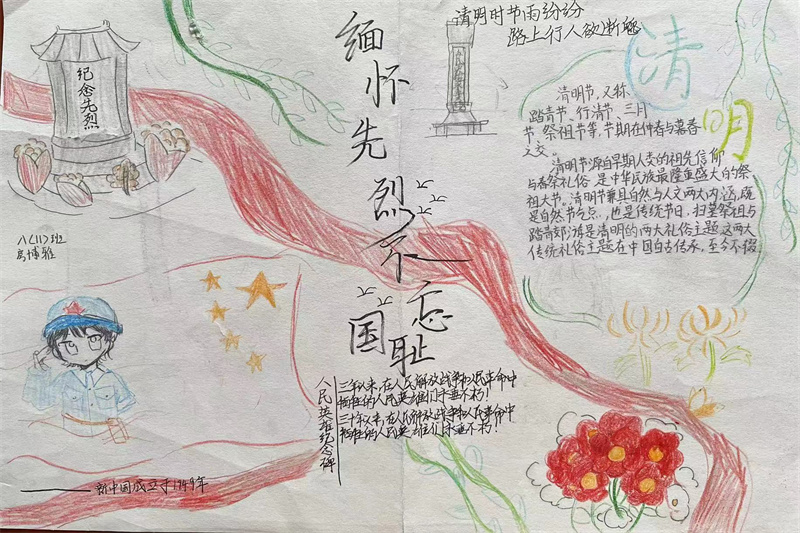 清明时节雨纷纷
路上行人欲断魂
缅怀先烈不忘国耻
纪念先烈
清明
清明节，又称
踏青节、行清节、三月
节、祭祖节等，节期在仲春与暮春
之交。
清明节源自早期人类的祖先信仰
与春祭礼俗，是中华民族最隆重盛大的祭
祖大节。清明节兼具自然与人文两大内涵，既
是自然节气点，也是传统节日，扫墓祭祖与
踏青郊游是清明的两大礼俗主题，这两大
传统礼俗主题在中国自古传承，至今不辍
八(11)班
房博雅
人民英雄纪念碑
三年以来，在人民解放战争和人民革命中
牺牲的人民英雄们永垂不朽！
三十年以来，在人民解放战争和人民革命中
牺牲的人民英雄们永垂不朽！
新中国成立于1949年